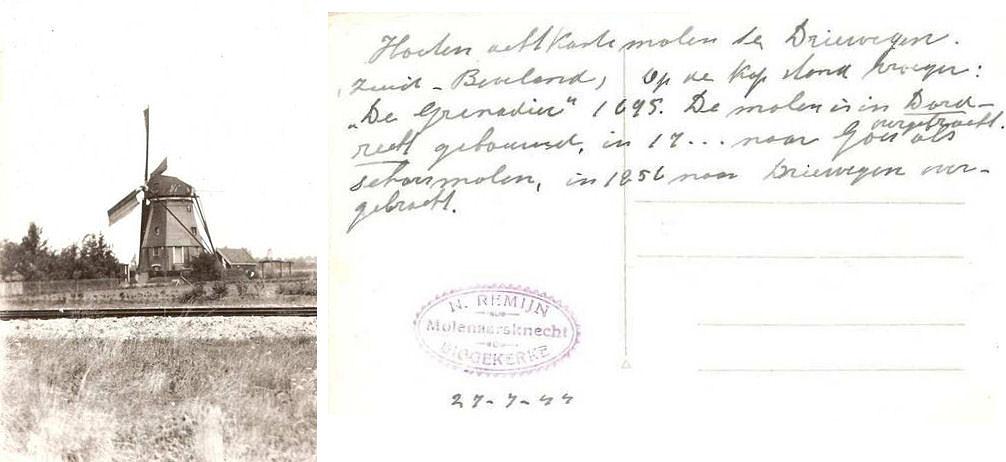 Houten achtkante molen te Driewegen.
Zuid-Beveland, Op de Kap stond vroeger:
„De Grenadier" 1695. De molen is in Dord-
recht gebouwd, in 17... naar Goes als overgebracht.
schorsmolen, in 1856 naar Driewegen over-
gebracht.
N. REMIJN
Molenaarsknecht
BIGGEKERKE
27-7-44